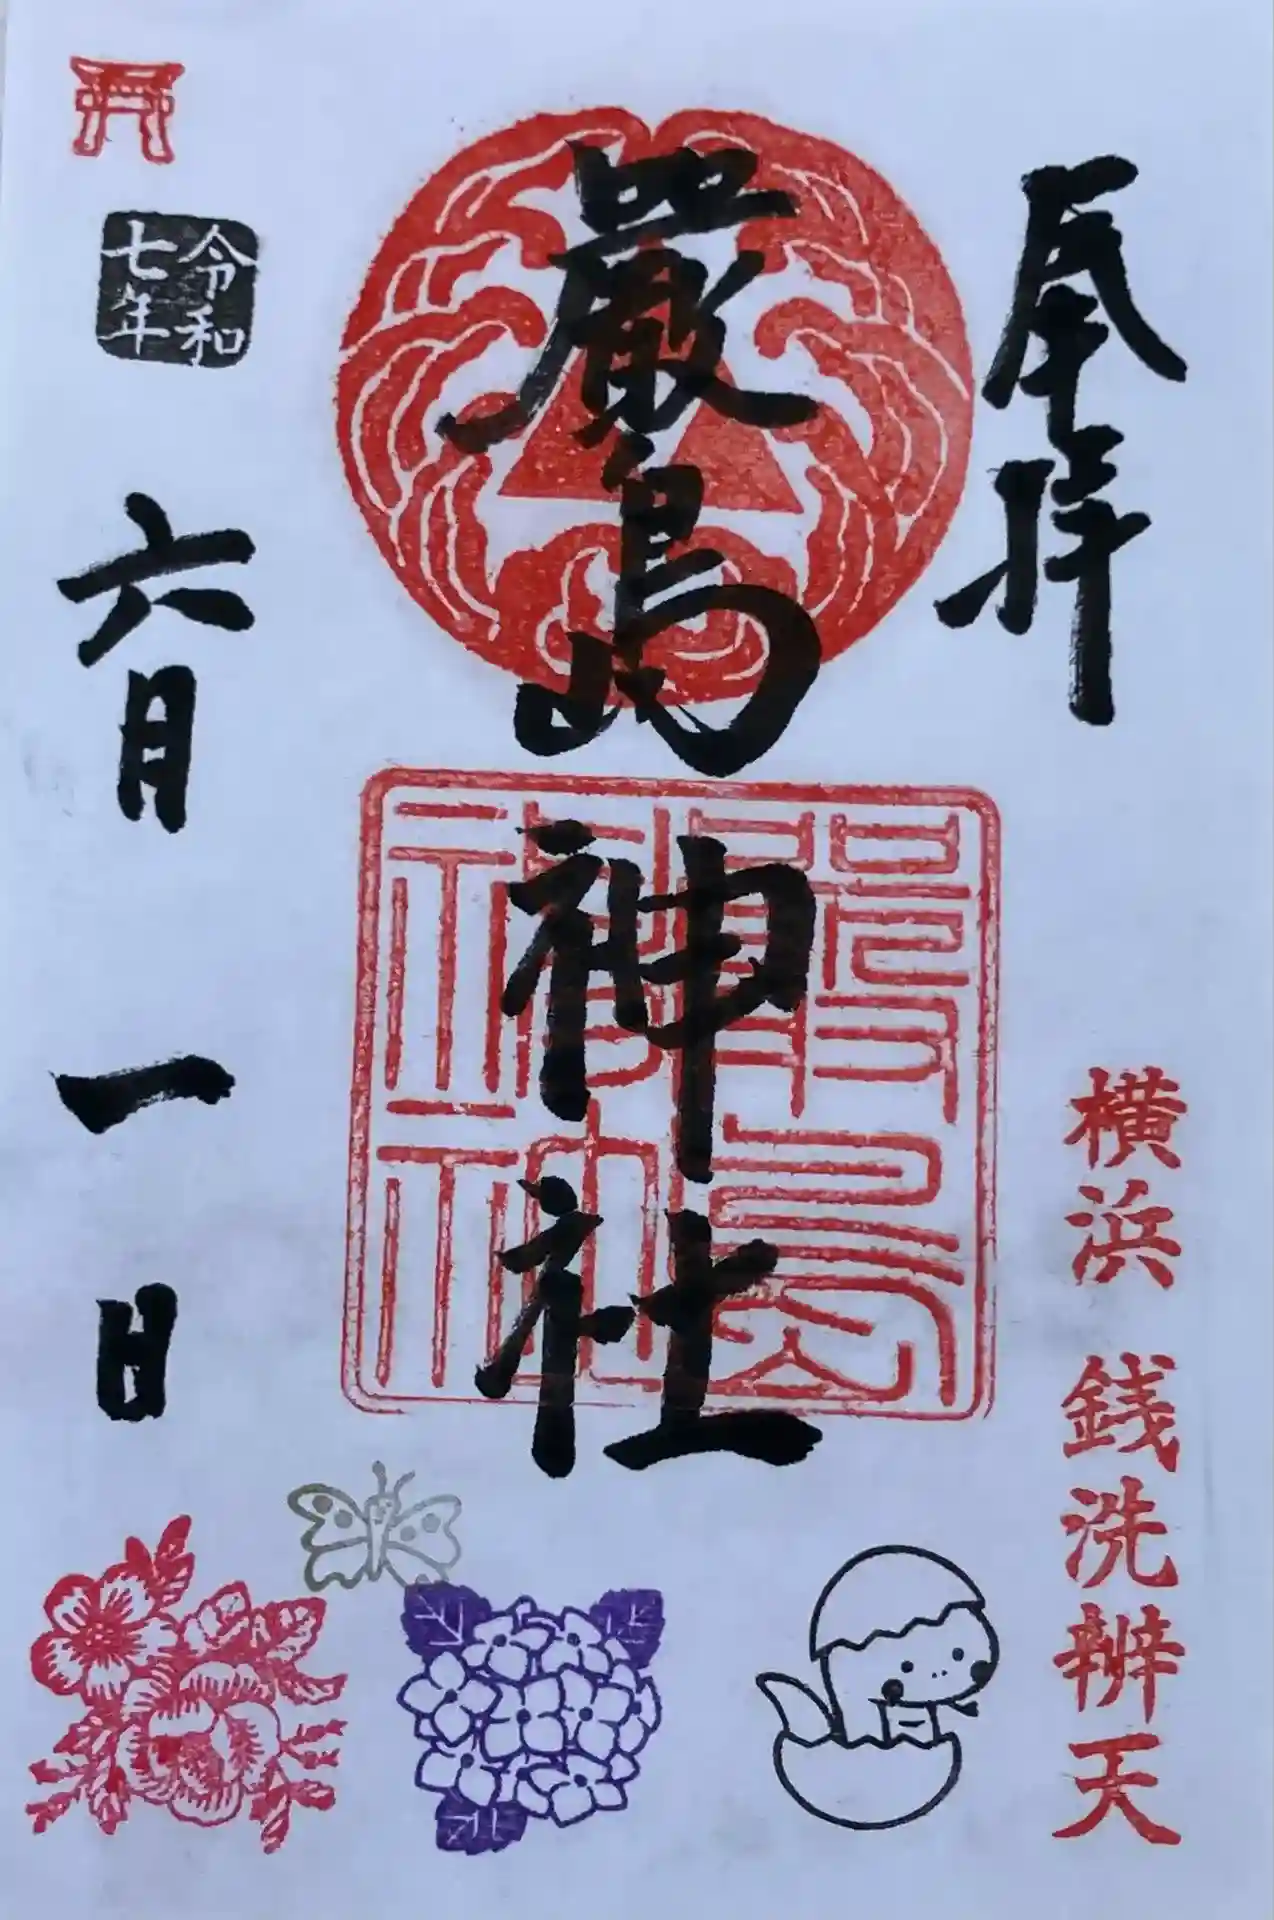 奉拝
横浜 銭洗辨天
嚴島神社
嚴島
神社
令和
七年
六月一日